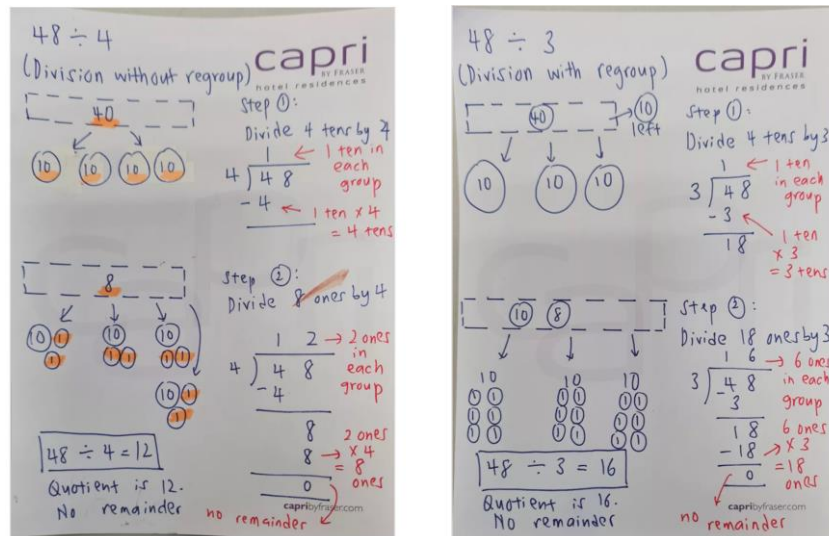 48 ÷ 4
(Division without regroup)
capri
BY FRASER
hotel residences
40
10 10 10 10
Step ①:
Divide 4 tens by 4
1 ← 1 ten in
each
group
4 48
-4 ← 1 ten × 4
= 4 tens
8
10 1 10 10
1 1 1 1 1
10 1
1
Step ②:
Divide 8 ones by 4
1 2 → 2 ones
in
each
group
4 4 8
- 4
8 2 ones
8 → × 4
= 8
0 ones
48 ÷ 4 = 12
Quotient is 12.
No remainder
no remainder
capribyfraser.com
48 ÷ 3
(Division with regroup)
capri
BY FRASER
hotel residences
40 → 10
left
10 10 10
Step ①:
Divide 4 tens by 3
1 ← 1 ten
in each
group
3 48
-3
1 ten
18 × 3
= 3 tens
10 8
10 10 10
1 1 1 1 1 1
1 1 1 1 1 1
1 1 1 1 1 1
Step ②:
Divide 18 ones by 3
1 6 → 6 ones
in each
group
3 4 8
- 3
18 6 ones
-18 → × 3
= 18
0 ones
48 ÷ 3 = 16
Quotient is 16.
No remainder
no remainder
capribyfraser.com